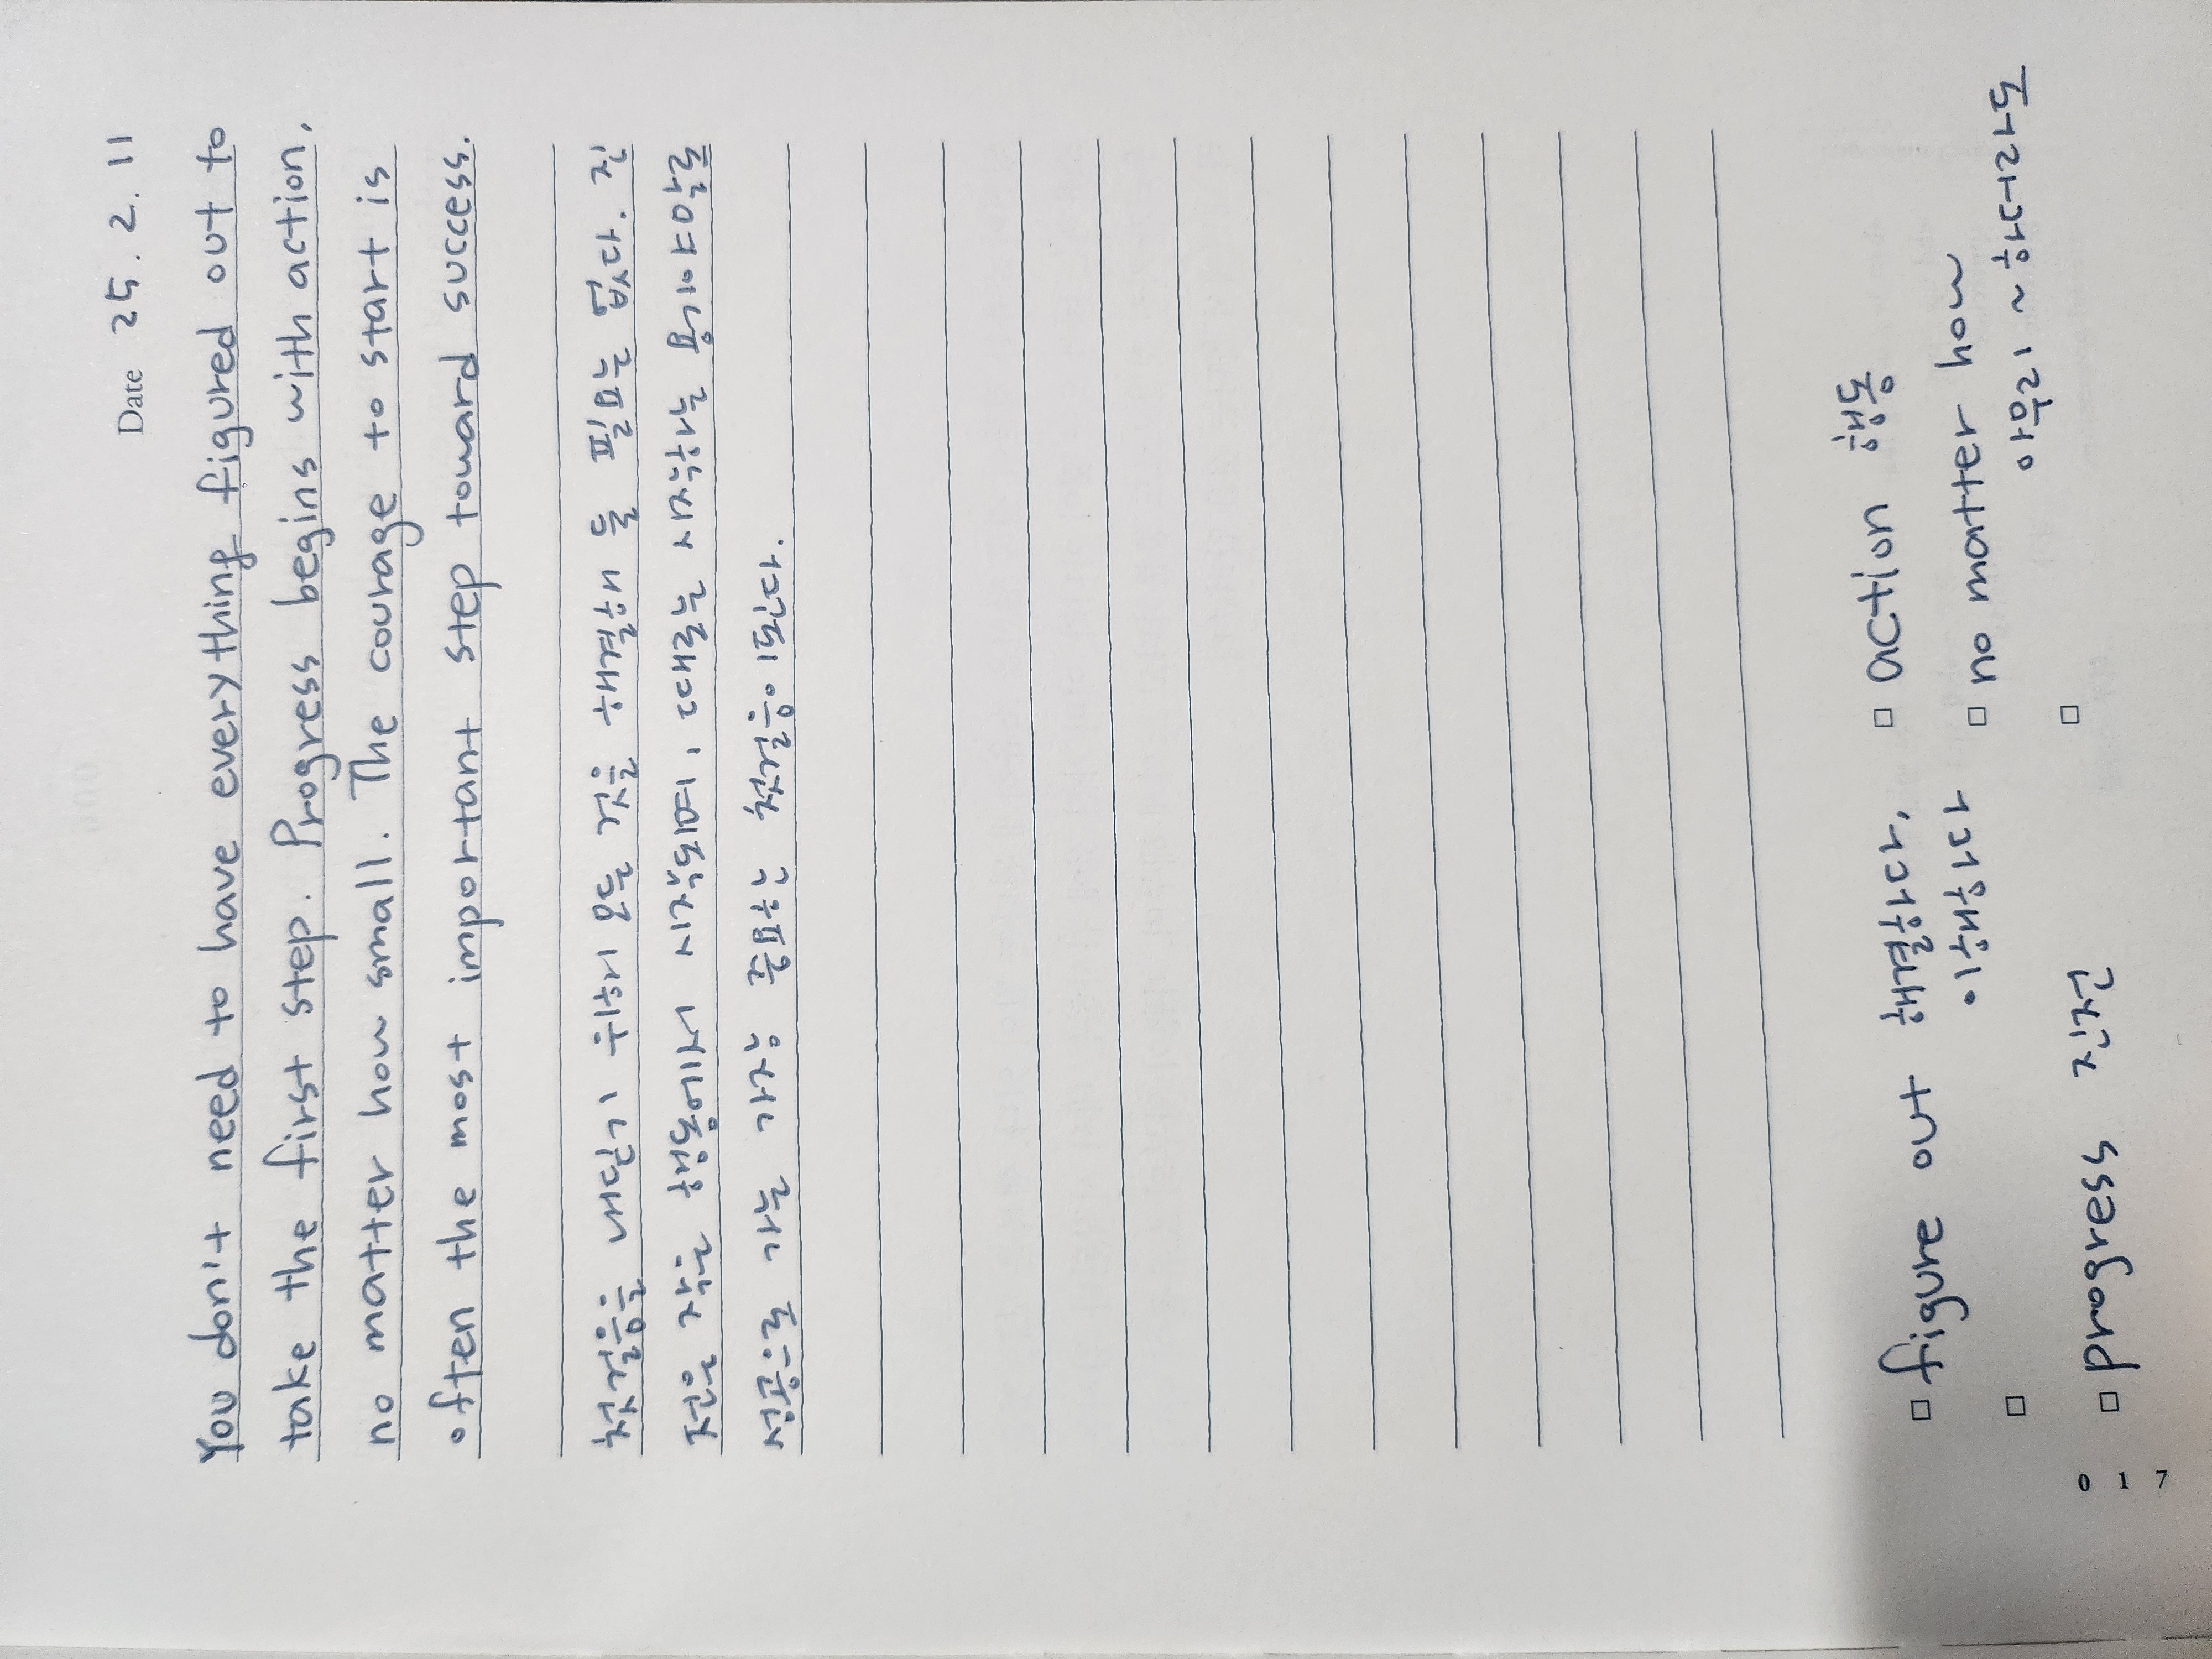 Date 25.2.11
You don't need to have everything figured out to
take the first step. Progress begins with action,
no matter how small. The courage to start is
often the most important step toward success.
첫걸음을 내딛기 위해 모든 것을 해결해 둘 필요는 없다. 진
전은 작은 행동에서 시작되며, 때로는 시작하는 용기야말로
성공으로 가는 가장 중요한 첫걸음이된다.
figure out 해결하다,
이해하다
progress 진전
action 행동
no matter how
아무리 ~하더라도
017